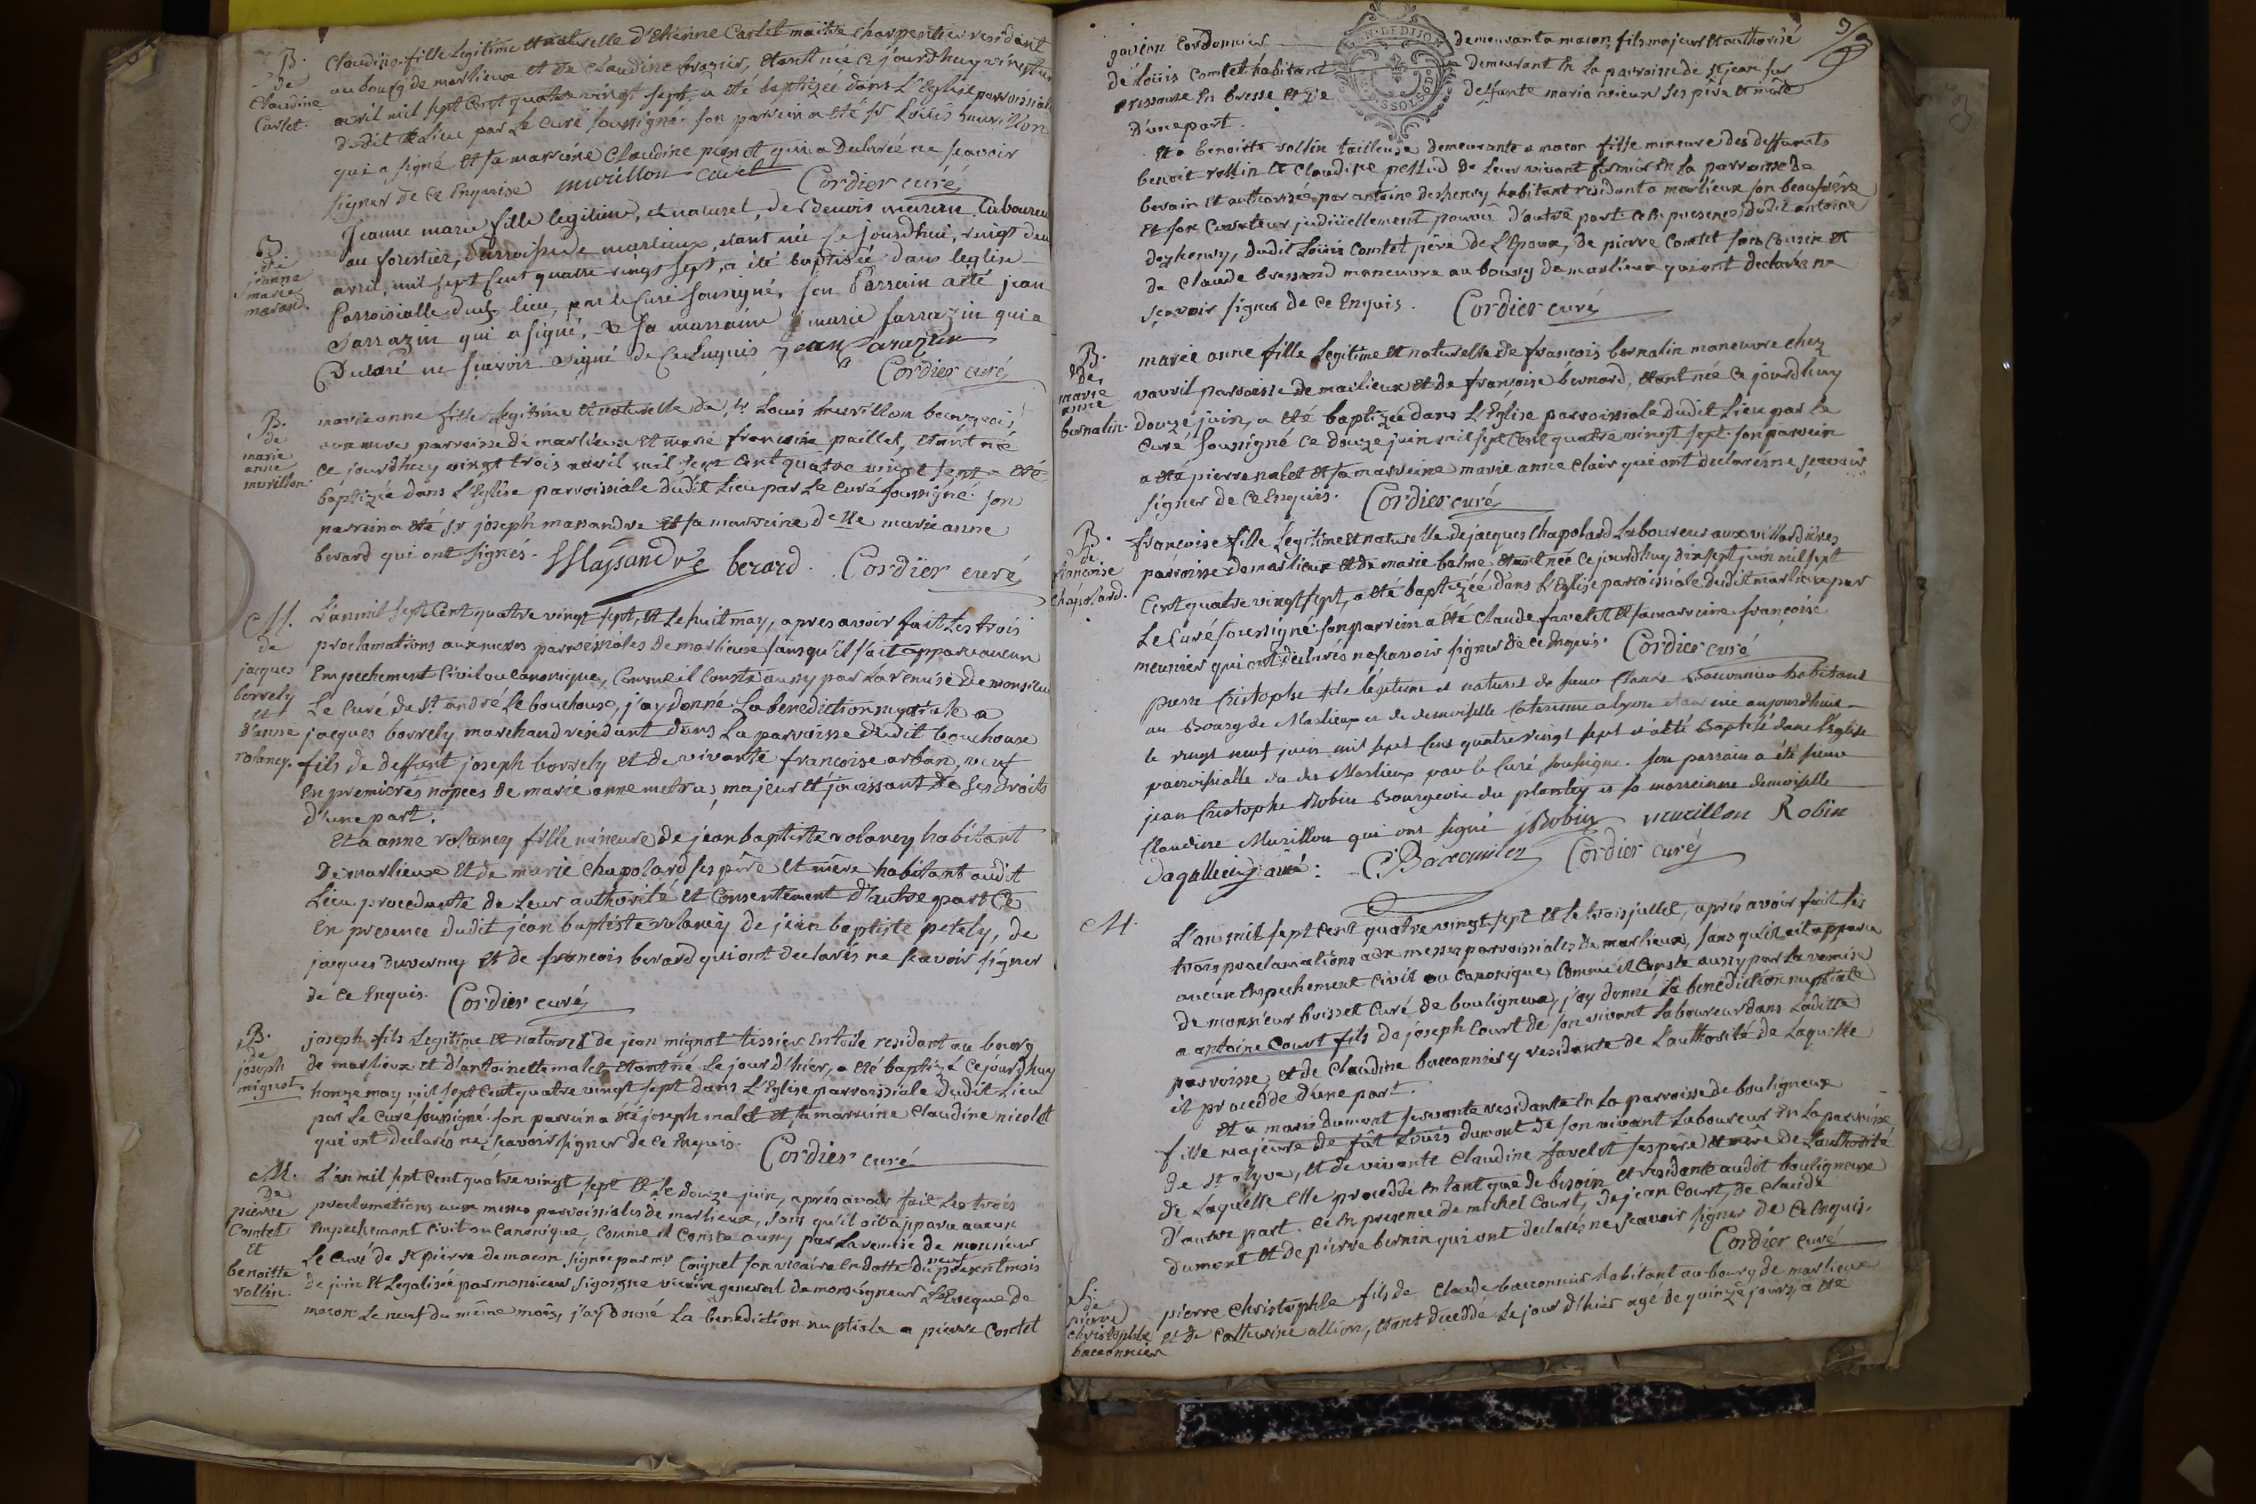 B.
de
Claudine
Carlet.
Claudine fille legitime et naturelle d'Etienne Carlet maitre charpentier residant
au bourg de marlieux et de Claudine brazier, etant née ce jourdhuy vingt un
avril mil sept cent quatre vingt sept, a été baptizée dans l'Eglise parroissiale
dudit lieu par le curé soussigné. son parrein a été sr Louis muvillon
qui a signé et sa marreine Claudine penet qui a declarée ne scavoir
signer de ce Enquise muvillon Cordier curé
B.
de
jeanne
marie
maran.
Jeanne marie fille legitime, et naturel, de Benoit maran laboureur
au forestier, Parroisse de marlieux, etant née ce jourdhui, vingt deux
avril, mil sept cent quatre vingt sept, a été baptisée dans leglise
Parroisialle dudt lieu, par le curé sousigné, son Parrain a été jean
Sarrazin qui a signé, & sa marraine marie sarrazin qui a
Declaré ne scavoir signé de ce Enquis jean Sarazin
Cordier curé
B.
de
marie
anne
muvillon.
marie anne fille legitime et naturelle de sr Louis muvillon bourgeois
parroisse de marlieux et marie francoise paillet, etant née
ce jourdhuy vingt trois avril mil sept cent quatre vingt sept a été
baptizée dans l'Eglise parroissiale dudit Lieu par Le curé soussigné. son
parrein a été sr joseph massandre et sa marreine delle marie anne
berard qui ont signés. Massandre berard. Cordier curé
M.
de
jacques
borrely
et
d'anne
rolancy.
L'an mil sept cent quatre vingt sept, et Le huit may, apres avoir fait Les trois
proclamations aux messes parroissiales de marlieux sans qu'il s'ait apparu aucun
Empechement civil ou canonique, Comme il conste aussy par La remise de monsieur
Le Curé de St. andré Le bouchoux, j'ay donné La benediction nuptiale a
jacques borrely marchand residant dans La parroisse dudit bouchoux
fils de deffunt joseph borrely et de vivante francoise arban, veuf
en premieres nopces de marie anne metras, majeur et jouissant de ses droits
d'une part.
et a anne rolancy fille mineure de jean baptiste rolancy habitant
de marlieux et de marie chapolard ses pére et mére habitant audit
Lieu procedante de Leur authorité et Consentement d'autre part Ce
en presence dudit jean baptiste rolancy de jean baptiste petely, de
jacques duverney et de francois berard qui ont declarés ne scavoir signer
de ce Enquis. Cordier curé
B.
de
joseph
mignot.
joseph fils Legitime et naturel de jean mignot tissier en toile residant au bourg
de marlieux et d'antoinette malet etant né Le jour d'hier, a été baptizé Cejourdhuy
honze may mil sept cent quatre vingt sept dans L'Eglise parroissiale dudit Lieu
par Le curé soussigné. son parrein a été joseph malet et sa marreine Claudine nicolet
qui ont declarés ne scavoir signer de ce Enquis. Cordier curé
M.
de
pierre
Comtet
et
benoitte
rollin.
L'an mil sept cent quatre vingt sept et Le douze juin, aprés avoir fait Les trois
proclamations aux messes parroissiales de marlieux, sans qu'il ait apparu aucun
Empechement civil ou canonique, comme il conste aussy par La remise de monsieur
Le curé de St pierre de macon signée par mr Coignet son vicaire En datte du neuf present mois
de juin et Legalisée par monsieur sigorgne vicaire general de monseigneur L'Eveque de
macon Le neuf du même mois, j'ay donné La benediction nuptiale a pierre Comtet
garçon Cordonnier demeurant a macon, fils majeur et authorisé
de Loüis Comtet habitant demeurant en La parroisse de St jean sur
ressouse En bresse et de deffunte marie ses pére et mére
d'une part.
et a benoitte rollin tailleuse demeurante a macon fille mineure des deffunts
benoit rollin et Claudine de Leur vivant fermiers en La parroisse de
et authorisée par antoine deshenry habitant residant a marlieux son beaufrére
et son Curateur judiciellement pourvû d'autre part. Ce En presence dudit antoine
deshenry, dudit Loüis Comtet pére de L'Epoux, de pierre Comtet son Cousin et
de Claude bressand manœuvre au bourg de marlieux qui ont declarés ne
scavoir signer de ce Enquis. Cordier curé
B.
de
marie
anne
bernalin.
marie anne fille legitime et naturelle de francois bernalin manœuvre chez
vavril parroisse de marlieux et de francoise bernard, etant née ce jourdhuy
douze juin, a été baptizée dans L'Eglise parroissiale dudit Lieu par Le
curé soussigné ce douze juin mil sept cent quatre vingt sept. son parrein
a été pierre malet et sa marreine marie anne clair qui ont declarés ne scavoir
signer de ce Enquis. Cordier curé
B.
de
francoise
chapolard.
francoise fille legitime et naturelle de jacques chapolard Laboureur aux villardieres
parroisse de marlieux et de marie balme etant née ce jourdhuy dix sept juin mil sept
cent quatre vingt sept, a été baptizée dans L'Eglise parroissiale dudit marlieux par
Le Curé soussigné. son parrein a été Claude favelet et sa marreine francoise
meunier qui ont declarés ne scavoir signer de ce Enquis. Cordier curé
pierre Cristophe fils légitime et naturel de sieur Claude Baconnier habitant
au Bourg de Marlieux et de demoiselle Caterinne alyon etant née aujourdhuis
le vingt neuf juin mil sept cens quatre vingt sept a été Baptisé dans l'église
parroissialle du dit Marlieux par le Curé soussigné. son parrain a été sieur
jean Cristophe Robin Bourgeois du plantey et sa marreinne demoiselle
Claudine Muvillon qui ont signé jRobin muvillon Robin
Dagallier C Baconnier Cordier curé
M.
L'an mil sept cent quatre vingt sept et Le trois juillet, aprés avoir fait les
trois proclamations aux messes parroissiales de marlieux, sans qu'il ait apparu
aucun Empechement civil ou canonique, comme il conste aussy par La remise
de monsieur buisset Curé de bouligneux, j'ay donné La benediction nuptiale
a antoine Court fils de joseph Court de son vivant Laboureur dans Laditte
parroisse, et de Claudine baconnier y residante de L'authorité de Laquelle
il procedde d'une part.
et a marie dumont servante residante En La parroisse de bouligneux
fille majeure de fût Loüis dumont de son vivant Laboureur En La parroisse
de St olyve, et de vivante Claudine favelet ses pere et mére de L'authorité
de Laquelle Elle procedde en tant que de besoin et residante audit bouligneux
d'autre part. Ce En presence de michel Court, de jean Court, de Claude
dumont et de pierre bernin qui ont declarés ne scavoir signer de ce Enquis.
Cordier curé
S.
de
pierre
christophle
baconnier
pierre christophle fils de Claude baconnier habitant au bourg de marlieux
et de catherine allion, etant decedde Le jour d'hier agé de quinze jours, a été